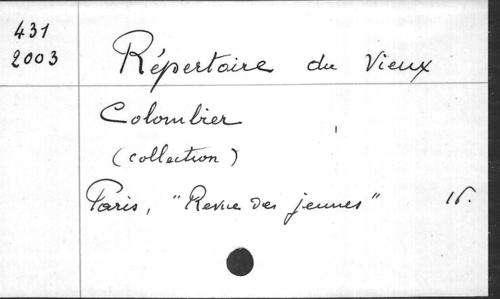 431
2003
Répertoire du Vieux
Colombier
(collection)
Paris, "Revue des jeunes" 16.